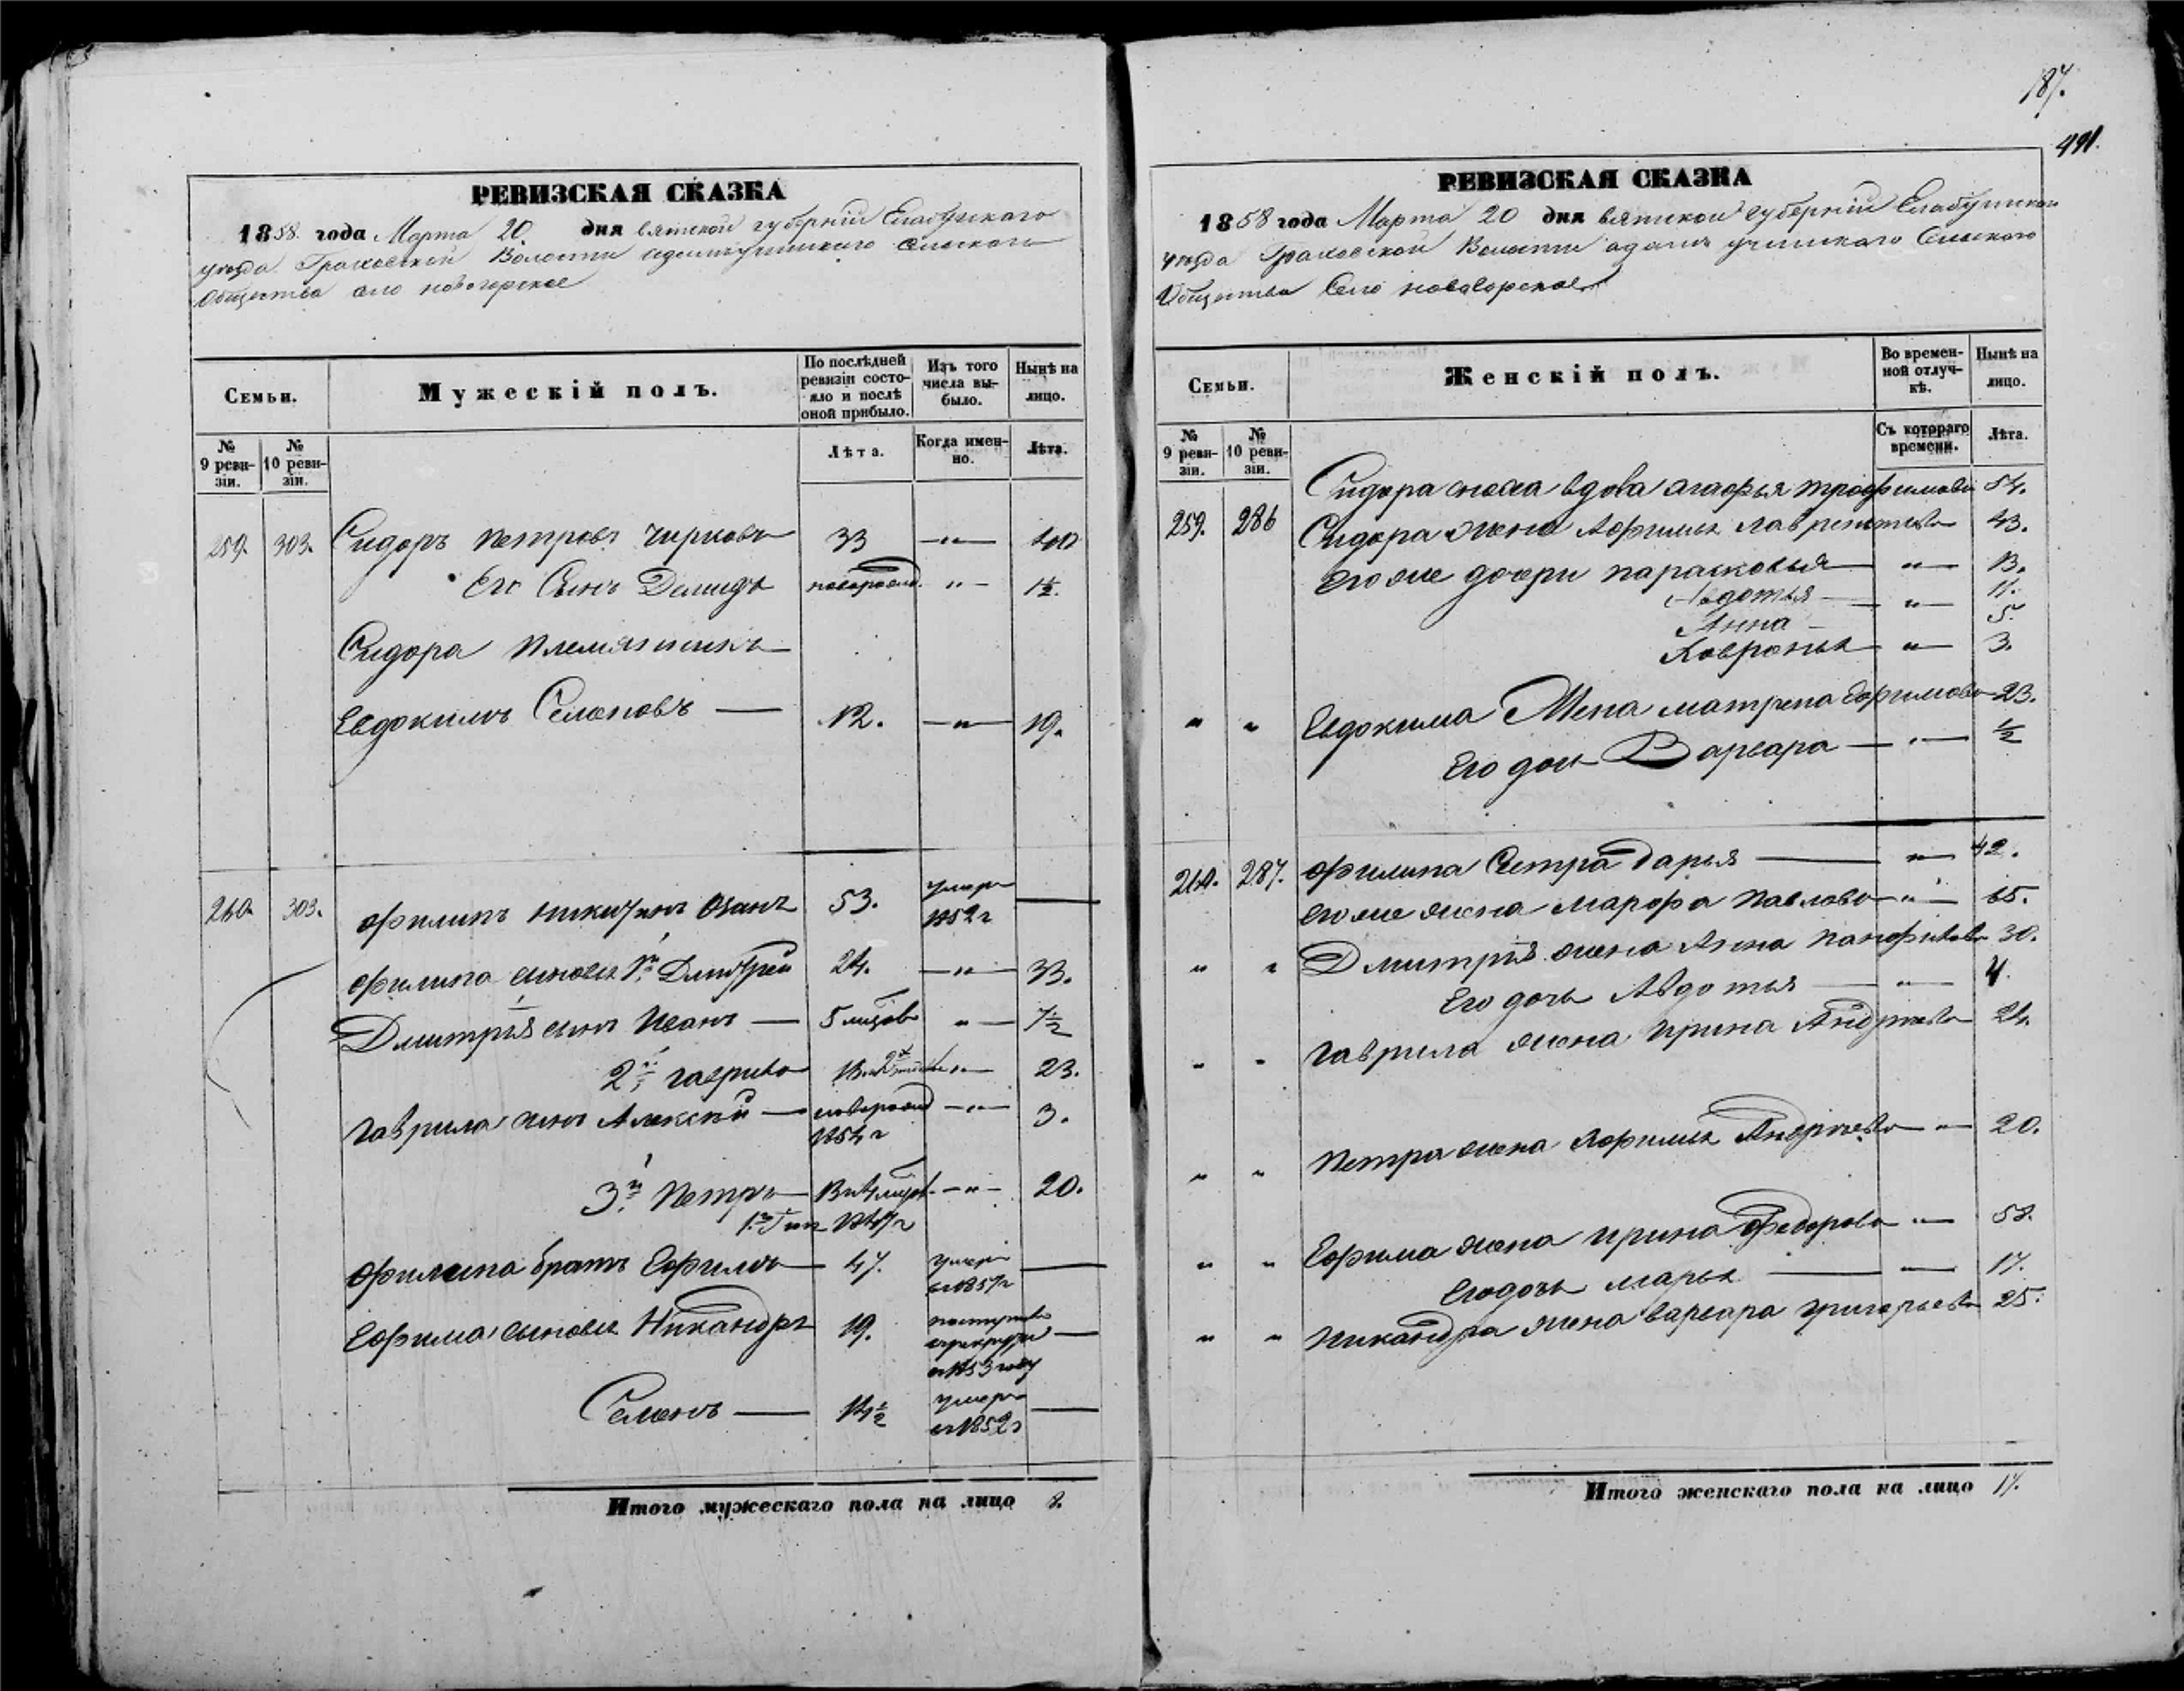 187.
491.
РЕВИЗСКАЯ СКАЗКА
1858 года Марта 20 дня вятской губерніи Елабужскаго
уезда Граховской Волости адамъ учинскаго Сельскаго
Общества село новогорское
Семьи.
Мужескій полъ.
По послѣдней ревизіи состояло и послѣ оной прибыло.
Изъ того числа выбыло.
Нынѣ на лицо.
№ 9 ревизіи.
№ 10 ревизіи.
Лѣта.
Когда именно.
Лѣта.
259. 303. Сидоръ петровъ чирковъ 33 —"— 40
Его Сынъ Демидъ новорожд. "— 1½.
Сидора племянникъ
Евдокимъ Семеновъ — 12. —"— 19.
260. 303. филипъ никитинъ 53. умеръ 1852 г —
филипа сыновья 1й Дмитрей 24. —"— 33.
Дмитрія сынъ Иванъ — 5 "— 7½
2й гаврило "— 23.
гаврила сынъ Алексей — новорожд 1854 г —"— 3.
3й петръ — —"— 20.
филипа братъ Ефимъ — 47. умеръ в 1857 г —
Ефима сыновья Никандръ 19. поступилъ в рекруты в 1853 году —
Семенъ — 14½ умеръ в 1852 г —
Итого мужескаго пола на лицо 8.
РЕВИЗСКАЯ СКАЗКА
1858 года Марта 20 дня вятской губерніи Елабужскаго
уезда Граховской Волости адамъ учинскаго Сельскаго
Общества Село новогорское
Семьи.
Женскій полъ.
Во временной отлучкѣ.
Нынѣ на лицо.
№ 9 ревизіи.
№ 10 ревизіи.
Съ котораго времени.
Лѣта.
Сидора сноха вдова агафья трофимова 54.
259. 286 Сидора жена Афимья лаврентьева 43.
его же дочери парасковья — "— 13.
Авдотья — "— 11.
Анна — 5.
Хавронья "— 3.
" " Евдокима Жена матрена Ефимова 23.
Его доч Варвара — "— ½
260. 287. филипа Сестра дарья — "— 42.
его же жена марфа павлова "— 65.
" " Дмитрія жена Анна панфилова 30.
Его дочь Авдотья — "— 4.
" " гаврила жена ирина Андреева 24.
" " петра жена Афимья Андреева "— 20.
" " Ефима жена ирина федорова "— 58.
Его дочь марья — — 17.
" " никандра жена варвара григорьева 25.
Итого женскаго пола на лицо 17.